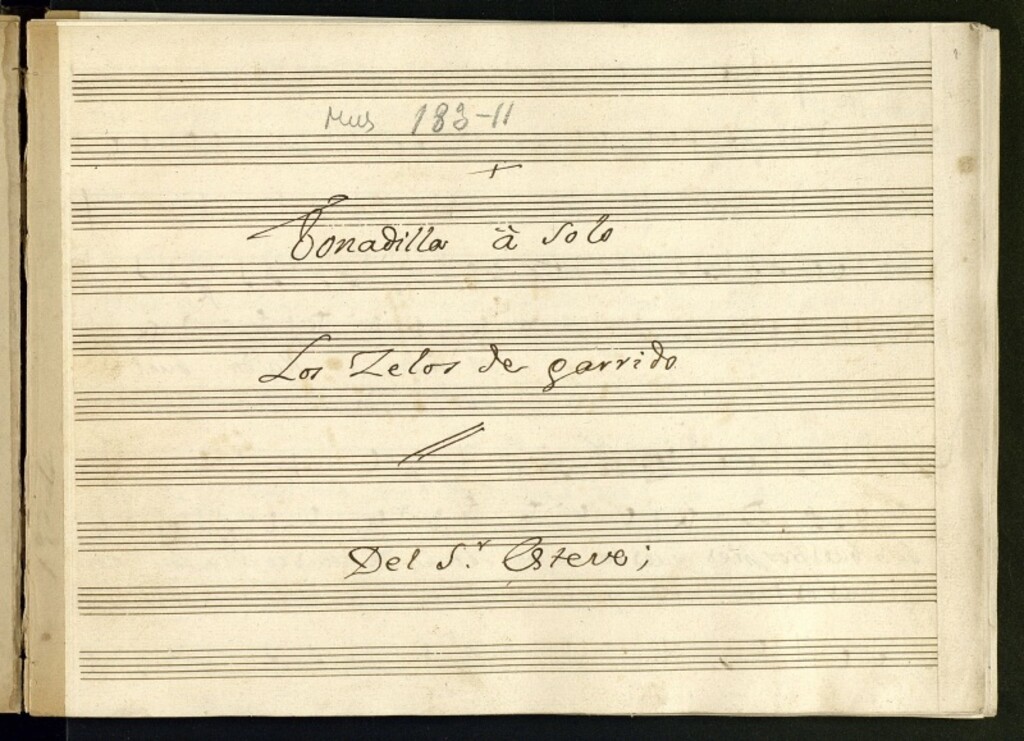 Mus 183-11
Tonadilla à Solo
Los Zelos de garrido
Del S.r Esteve;